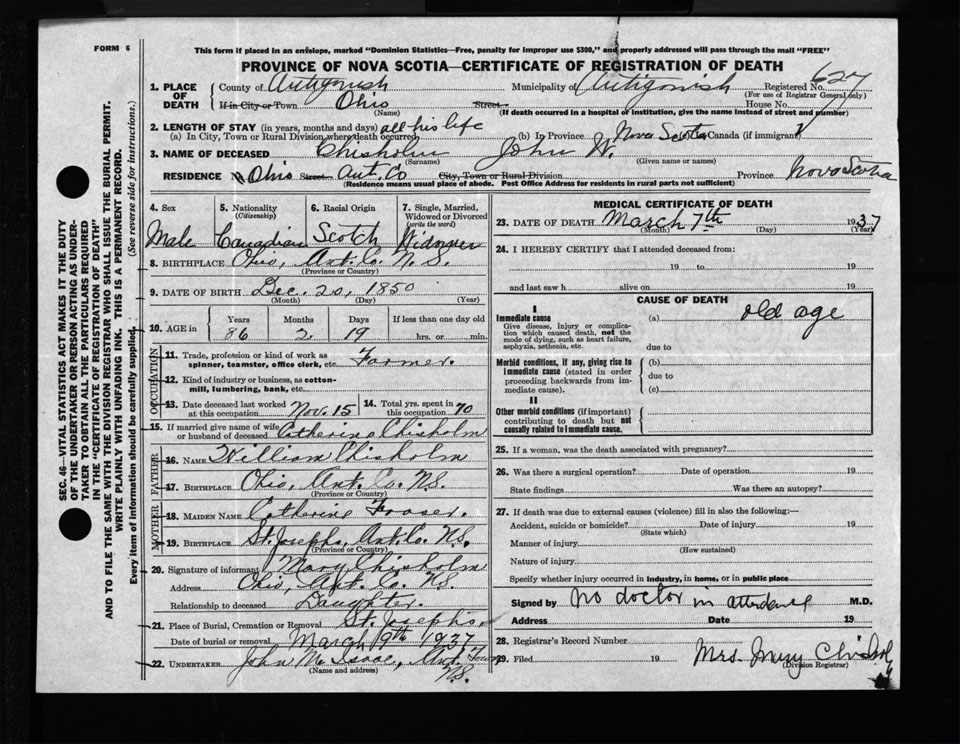 FORM 6
This form if placed in an envelope, marked "Dominion Statistics—Free, penalty for improper use $300," and properly addressed will pass through the mail "FREE"
PROVINCE OF NOVA SCOTIA—CERTIFICATE OF REGISTRATION OF DEATH
627
1. PLACE OF DEATH County of Antigonish Municipality of Antigonish Registered No.
(For use of Registrar General only)
If in City or Town Ohio Street House No.
(Name) (If death occurred in a hospital or institution, give the name instead of street and number)
2. LENGTH OF STAY (in years, months and days) all his life
(a) In City, Town or Rural Division where death occurred (b) In Province Nova Scotia Canada (if immigrant)
3. NAME OF DECEASED Chisholm John W.
(Surname) (Given name or names)
RESIDENCE Ohio Street Ant. Co City, Town or Rural Division Province Nova Scotia
(Residence means usual place of abode. Post Office Address for residents in rural parts not sufficient)
4. Sex 5. Nationality (Citizenship) 6. Racial Origin 7. Single, Married, Widowed or Divorced (write the word)
Male Canadian Scotch Widower
8. BIRTHPLACE Ohio, Ant. Co. N.S.
(Province or Country)
9. DATE OF BIRTH Dec. 20, 1850
(Month) (Day) (Year)
10. AGE in Years Months Days If less than one day old
86 2 19 hrs. or min.
OCCUPATION
11. Trade, profession or kind of work as spinner, teamster, office clerk, etc. Farmer.
12. Kind of industry or business, as cotton-mill, lumbering, bank, etc.
13. Date deceased last worked at this occupation Nov. 15 14. Total yrs. spent in this occupation 70
15. If married give name of wife or husband of deceased Catherine Chisholm
FATHER
16. NAME William Chisholm
17. BIRTHPLACE Ohio, Ant. Co. N.S.
(Province or Country)
MOTHER
18. MAIDEN NAME Catherine Fraser.
19. BIRTHPLACE St. Josephs, Ant. Co. N.S.
(Province or Country)
20. Signature of informant Mary Chisholm
Address Ohio, Ant. Co. N.S.
Relationship to deceased Daughter.
21. Place of Burial, Cremation or Removal St. Josephs.
Date of burial or removal March 9th 1937
22. UNDERTAKER John McIsaac, Ant. Town
(Name and address) N.S.
MEDICAL CERTIFICATE OF DEATH
23. DATE OF DEATH March 7th 1937
(Month) (Day) (Year)
24. I HEREBY CERTIFY that I attended deceased from:
19 to 19
and last saw h alive on 19
CAUSE OF DEATH
I
Immediate cause (a) old age
Give disease, injury or complication which caused death, not the mode of dying, such as heart failure, asphyxia, asthenia, etc.
due to
Morbid conditions, if any, giving rise to immediate cause (stated in order proceeding backwards from immediate cause).
(b)
due to
(c)
II
Other morbid conditions (if important) contributing to death but not causally related to immediate cause.
25. If a woman, was the death associated with pregnancy?
26. Was there a surgical operation? Date of operation 19
State findings Was there an autopsy?
27. If death was due to external causes (violence) fill in also the following:—
Accident, suicide or homicide? Date of injury 19
(State which)
Manner of injury
(How sustained)
Nature of injury
Specify whether injury occurred in industry, in home, or in public place
Signed by no doctor in attendence M.D.
Address Date 19
28. Registrar's Record Number
29. Filed 19 Mrs.
(Division Registrar)
SEC. 46—VITAL STATISTICS ACT MAKES IT THE DUTY
OF THE UNDERTAKER OR PERSON ACTING AS UNDER-
TAKER TO OBTAIN ALL THE PARTICULARS REQUIRED
IN THE "CERTIFICATE OF REGISTRATION OF DEATH"
AND TO FILE THE SAME WITH THE DIVISION REGISTRAR WHO SHALL ISSUE THE BURIAL PERMIT.
WRITE PLAINLY WITH UNFADING INK. THIS IS A PERMANENT RECORD.
Every item of information should be carefully supplied. (See reverse side for instructions.)